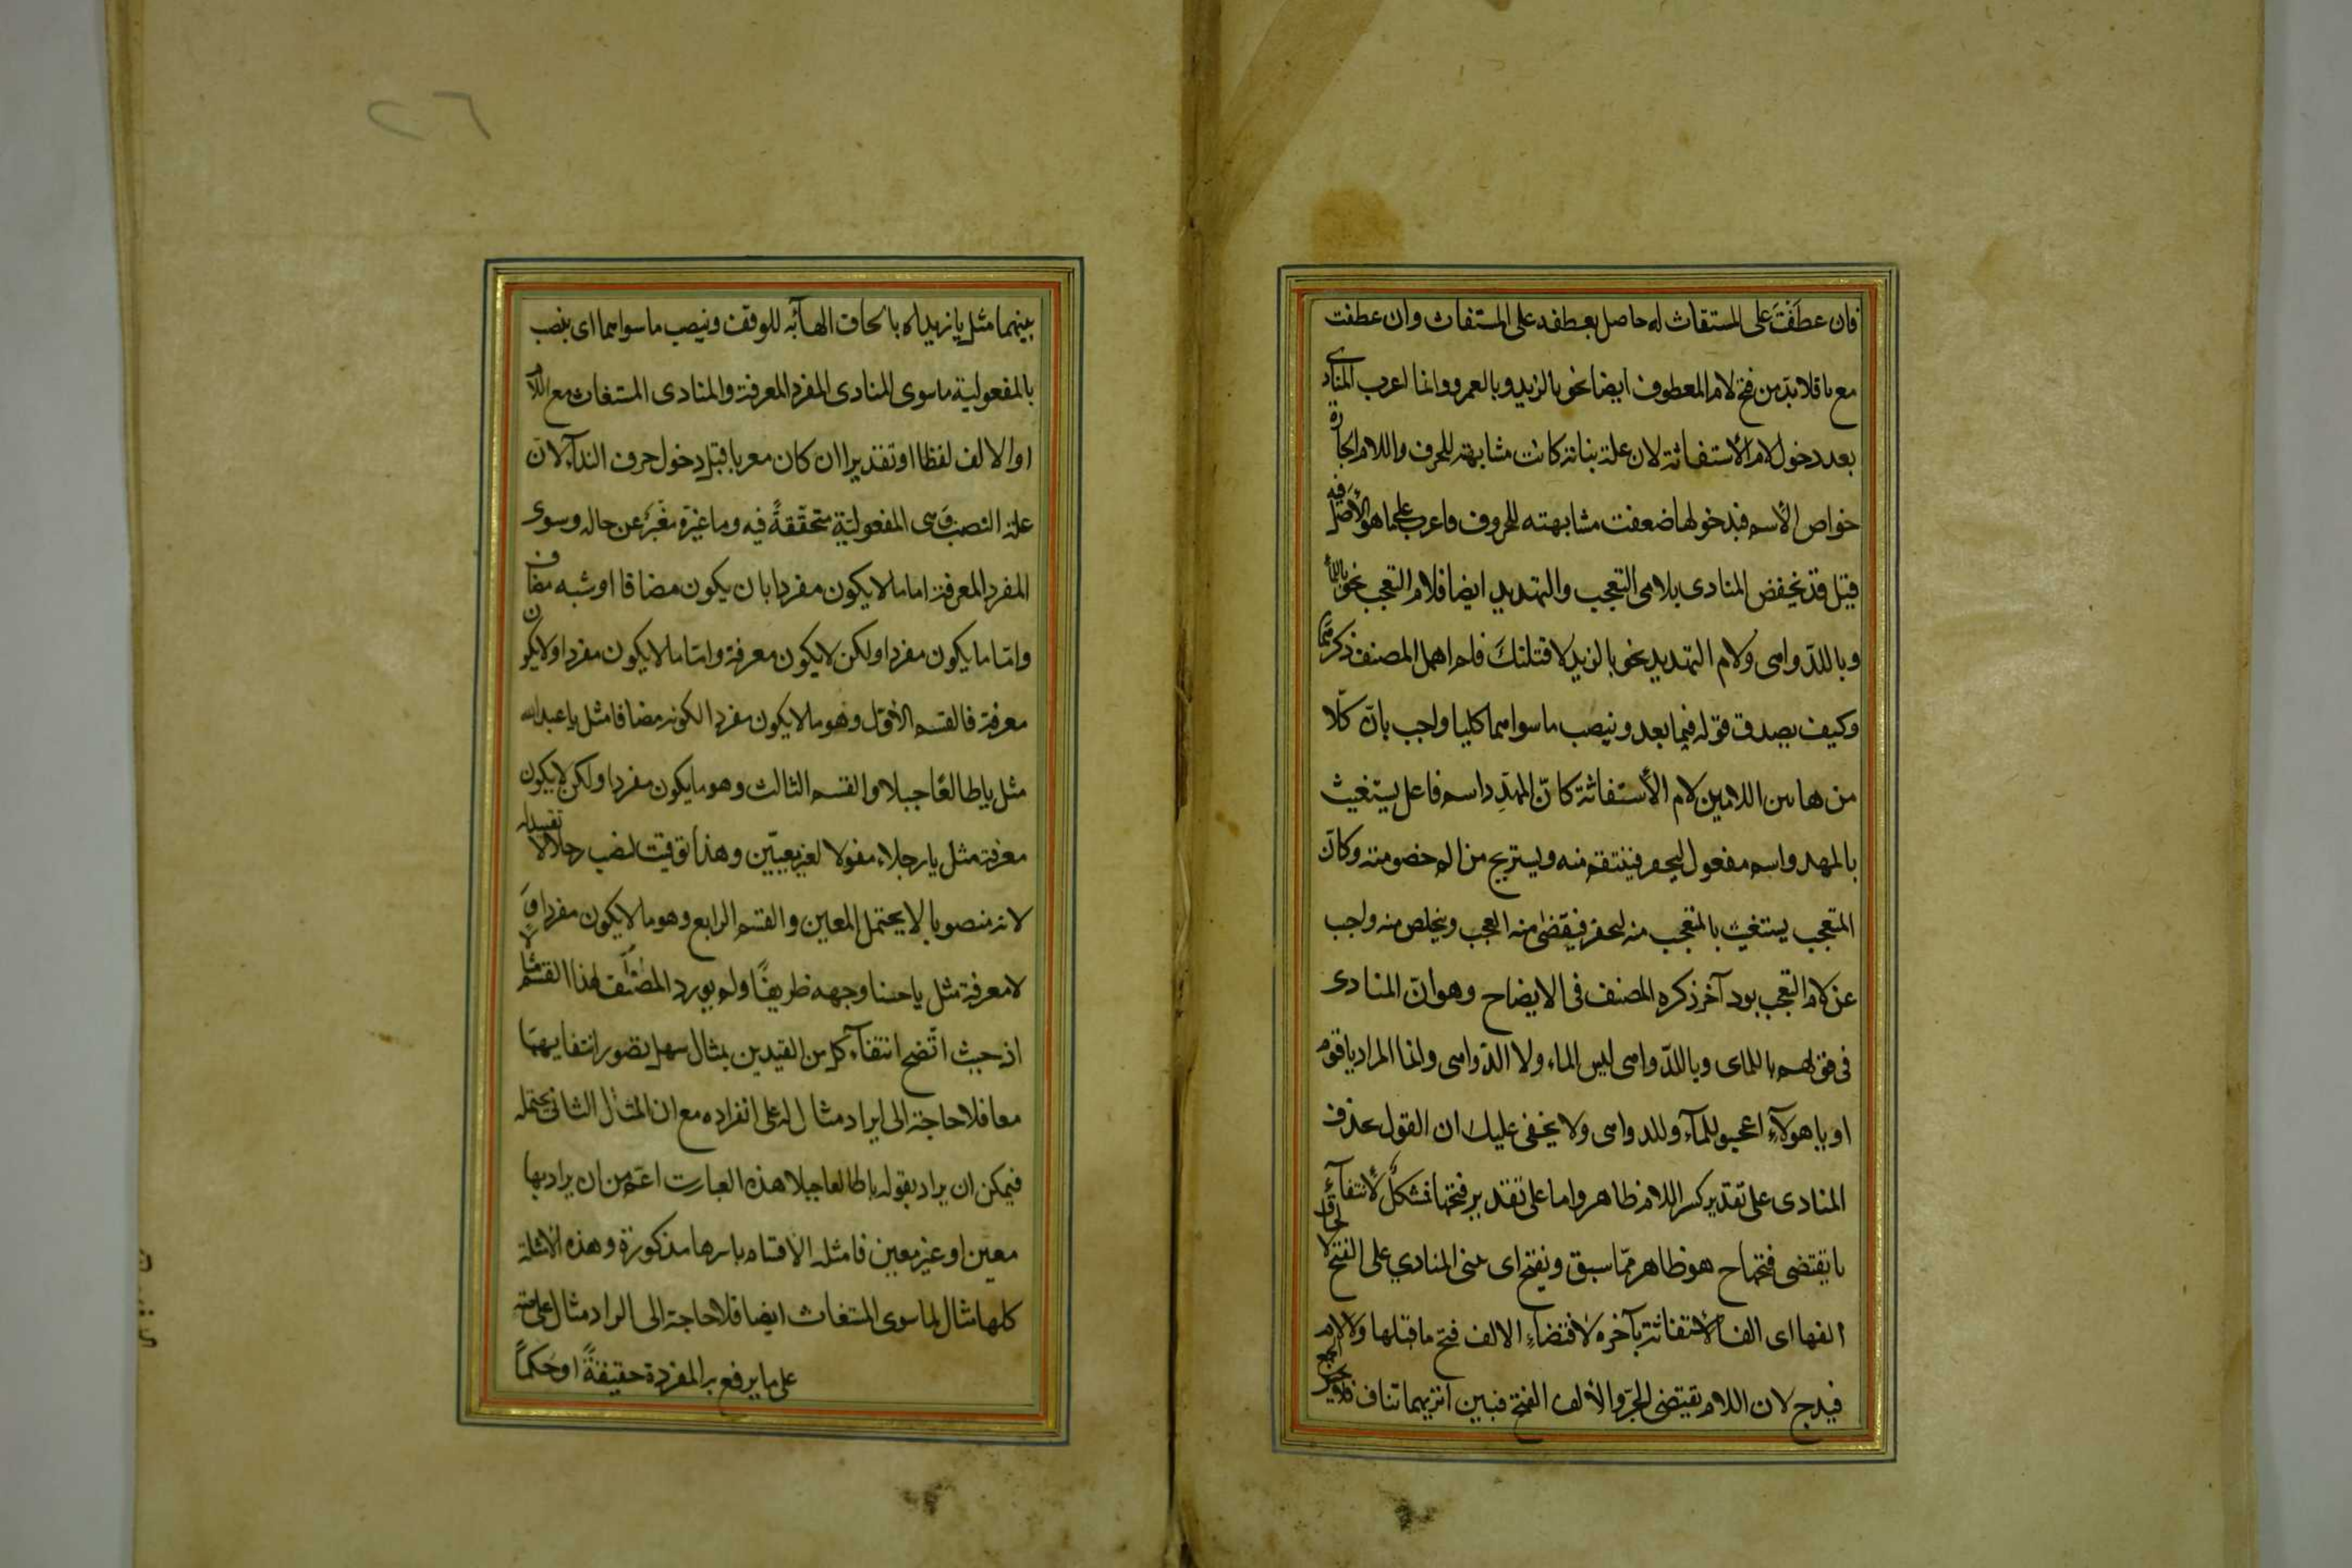 فان عطفت على المستغاث له حاصل بعطفه على المستغاث وان عطفت
مع يا فلا بد من فتح لام المعطوف ايضا نحو يا لزيد ويا لعمرو وانما اعرب المنادى
بعد دخول لام الاستغاثة لان علة بنائه كانت مشابهته للحرف واللام الجارة
خواص الاسم فبدخولها ضعفت مشابهته للحروف فاعرب على ما هو الاصل فيه
قيل قد يخفض المنادى بلامى التعجب والتهديد ايضا فلام التعجب نحو يا للماء
ويا للدواهى ولام التهديد نحو يا لزيد لاقتلنك فلم اهمل المصنف ذكرهما
وكيف يصدق قوله فيما بعد وينصب ما سواهما كليا واجب بان كلا
من هاتين اللامين لام الاستغاثة كان المهدد اسم فاعل يستغيث
بالمهدد اسم مفعول ليحضر فينتقم منه ويستريح من الم خصومته وكان
المتعجب يستغيث بالمتعجب منه ليحضر فيقضى منه العجب ويتخلص منه واجب
عن لام التعجب بوجه آخر ذكره المصنف فى الايضاح وهو ان المنادى
فى قولهم يا للماى ويا للدواهى ليس الماء ولا الدواهى وانما المراد يا قوم
او يا هولآء اعجبو للمآء وللدواهى ولا يخفى عليك ان القول بحذف
المنادى على تقدير كسر اللام ظاهر واما على تقدير فتحها فمشكل لانتفآء
ما يقتضى فتحها ح هو ظاهر مما سبق ويفتح اى يبنى المنادي على الفتح لالحاق
الفها اى الف الاستغاثة بآخره لاقتضآء الالف فتح ما قبلها ولا لام
فيه ح لان اللام يقتضى الجر والالف الفتح فبين اثريهما تناف فلا يحسن الجمع
بينهما مثل يا زيداه بالحاق الهآء به للوقف وينصب ما سواهما اى ينصب
بالمفعولية ما سوى المنادى المفرد المعرفة والمنادى المستغاث مع اللام
او الالف لفظا او تقديرا ان كان معربا قبل دخول حرف الندآء لان
علة النصب وهى المفعولية متحققة فيه وما غيره مغير عن حاله وسوى
المفرد المعرفة اما ما لا يكون مفردا بان يكون مضافا او شبه مضاف
واما ما يكون مفردا ولكن لا يكون معرفة واما ما لا يكون مفردا ولا يكون
معرفة فالقسم الاول وهو ما لا يكون مفردا لكونه مضافا مثل يا عبد الله
مثل يا طالعا جبلا والقسم الثالث وهو ما يكون مفردا ولكن لا يكون
معرفة مثل يا رجلا مقولا لغير معين وهذا توقيت لنصب رجلا لا تقييد له
لانه منصوبا لا يحتمل المعين والقسم الرابع وهو ما لا يكون مفردا و
لا معرفة مثل يا حسنا وجهه ظريفا ولم يورد المصنف لهذا القسم مثالا
اذ حيث اتضح انتفآء كل من القيدين بمثال سهل تصور انتفايهما
معا فلا حاجة الى ايراد مثال له على انفراده مع ان المثال الثانى يحتمله
فيمكن ان يراد بقوله يا طالعا جبلا هذه العبارت اعم من ان يراد بها
معين او غير معين فامثلة الاقسام باسرها مذكورة وهذه الامثلة
كلها مثال لما سوى المستغاث ايضا فلا حاجة الى ايراد مثال على حدة
على ما يرفع به المفردة حقيقة او حكما